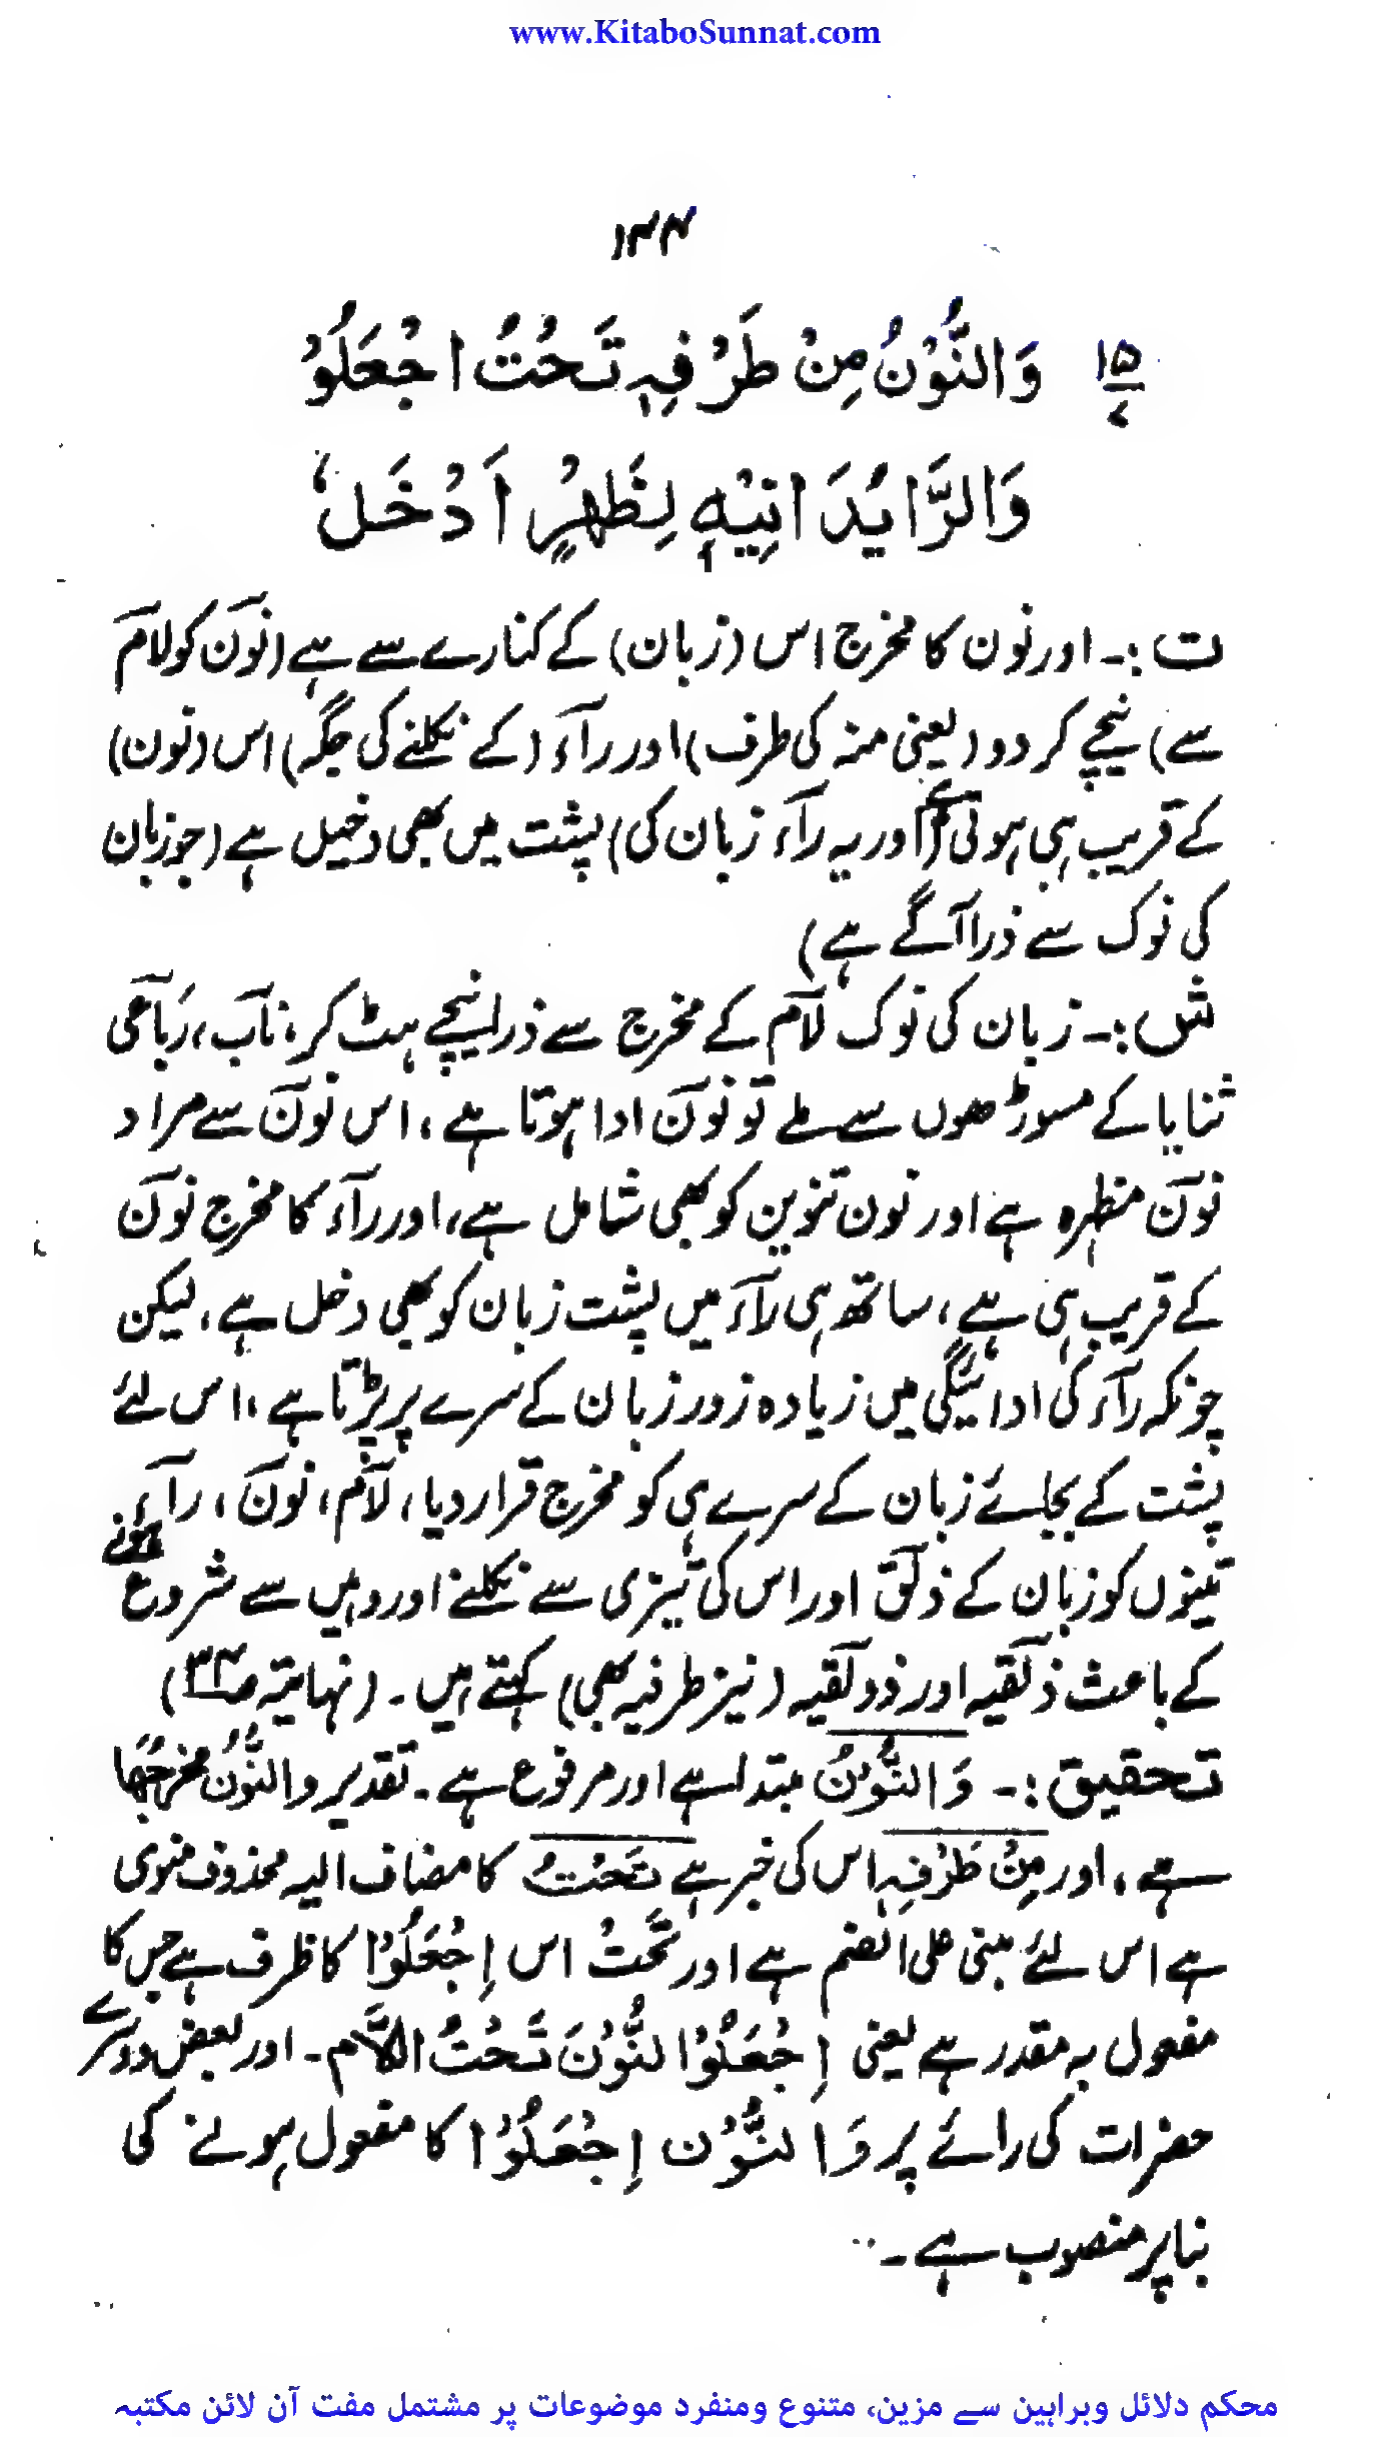 www.KitaboSunnat.com
۱۴۴
۱۵/۷ وَالنُّوْنُ مِنْ طَرْفِہٖ تَحْتُ اجْعَلُوْ
وَالرَّا يُدَانِيْهِ لِظَهْرٍ اَدْخَلُ
ت :۔ اور نون کا مخرج اس (زبان) کے کنارے سے ہے (نونؔ کو لامؔ
سے) نیچے کر دو (یعنی منہ کی طرف) اور رآء (کے نکلنے کی جگہ) اس (نون)
کے قریب ہی ہوتی ہے (اور یہ رآء زبان کی) پشت میں بھی دخیل ہے (جو زبان
کی نوک سے ذرا آگے ہے)
ش :۔ زبان کی نوک لآم کے مخرج سے ذرا نیچے ہٹ کر، نآب، رَبآعی
ثنایا کے مسوڑھوں سے ملے تو نونؔ ادا ہوتا ہے، اس نونؔ سے مراد
نونؔ مظہرہ ہے اور نون تنوین کو بھی شامل ہے، اور رآء کا مخرج نونؔ
کے قریب ہی ہے، ساتھ ہی رآء میں پشت زبان کو بھی دخل ہے، لیکن
چونکہ رآء کی ادائیگی میں زیادہ زور زبان کے سرے پر پڑتا ہے، اس لئے
پشت کے بجائے زبان کے سرے ہی کو مخرج قرار دیا، لآم، نونؔ، رآء
تینوں کو زبان کے ذلقؔ اور اس کی تیزی سے نکلنے اور وہیں سے شروع ہونے
کے باعث ذلقیہ اور ذولقیہ (نیز طرفیہ بھی) کہتے ہیں۔ (نہایتہ صـ۳۴)
تحقیق :۔ وَالنُّوْنُ مبتدا ہے اور مرفوع ہے۔ تقدیر والنُّوْنُ مخرجُهَا
ہے، اور مِنْ طَرْفِہٖ اس کی خبر ہے تَحْتُ کا مضاف الیہ محذوف منوی
ہے اس لئے مبنی علی الضم ہے اور تَحْتُ اس اِجْعَلُوْا کا ظرف ہے جس کا
مفعول بہ مقدر ہے یعنی اِجْعَلُوْا النُّوْنَ تَحْتَ اللَّام۔ اور بعض دوسرے
حضرات کی رائے پر وَالنُّوْن اِجْعَلُوْا کا مفعول ہونے کی
بنا پر منصوب ہے۔
محکم دلائل وبراہین سے مزین، متنوع ومنفرد موضوعات پر مشتمل مفت آن لائن مکتبہ